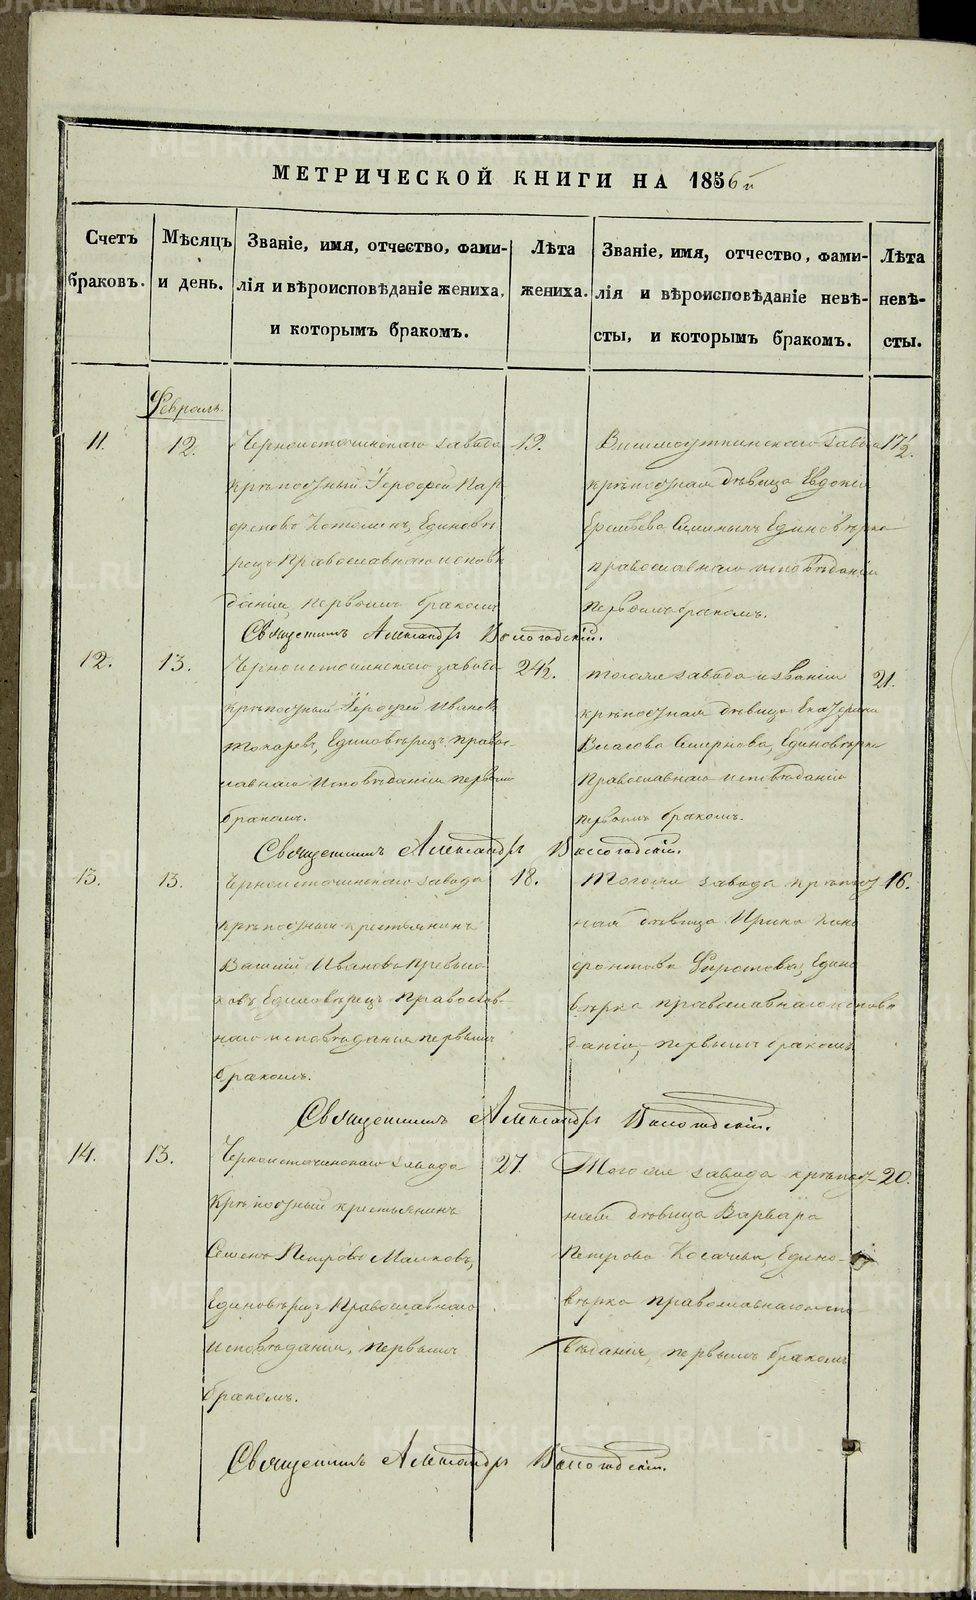 МЕТРИЧЕСКОЙ КНИГИ НА 1856й
Счетъ
браковъ.
Мѣсяцъ
и день.
Званіе, имя, отчество, фами-
лія и вѣроисповѣданіе жениха,
и которымъ бракомъ.
Лѣта
жениха.
Званіе, имя, отчество, фами-
лія и вѣроисповѣданіе невѣ-
сты, и которымъ бракомъ.
Лѣта
невѣ-
сты.
Февраль.
11.
12.
Черноисточинскаго завода
крѣпостный Ерофей Пар
феновъ Единовѣ
рецъ Православнаго исповѣ
данія, первымъ бракомъ
19.
Висимоуткинскаго завода
крѣпостная дѣвица Евдокія
Единовѣрка
православнаго исповѣданія
первымъ бракомъ.
17½.
Священникъ Александръ Вологодскій.
12.
13.
Черноисточинскаго завода
крѣпостный Ерофей Ивановъ
Токаревъ, Единовѣрецъ правос-
лавнаго исповѣданія первымъ
бракомъ.
24½.
тогоже завода и званія
крѣпостная дѣвица Екатерина
Власова Смирнова, Единовѣрка
Православнаго исповѣданія
первымъ бракомъ.
21.
Священникъ Александръ Вологодскій.
13.
13.
Черноисточинскаго завода
крѣпостный крестьянинъ
Василій Ивановъ
Единовѣрецъ Православ-
наго исповѣданія первымъ
бракомъ.
18.
Тогоже завода крѣпост
ная дѣвица Ирина Ксено
фонтова Сиротова, Едино
вѣрка православнаго исповѣ
данія, первымъ бракомъ
16.
Священникъ Александръ Вологодскій.
14.
13.
Черноисточинскаго завода
Крѣпостный крестьянинъ
Семенъ Петровъ Малковъ,
Единовѣрецъ Православнаго
исповѣданія, первымъ
бракомъ.
27.
Тогоже завода крѣпост-
ная дѣвица Варвара
Петрова Косачева, Едино-
вѣрка православнаго испо
вѣданія, первымъ бракомъ
20.
Священникъ Александръ Вологодскій.
METRIKI.GASO-URAL.RU